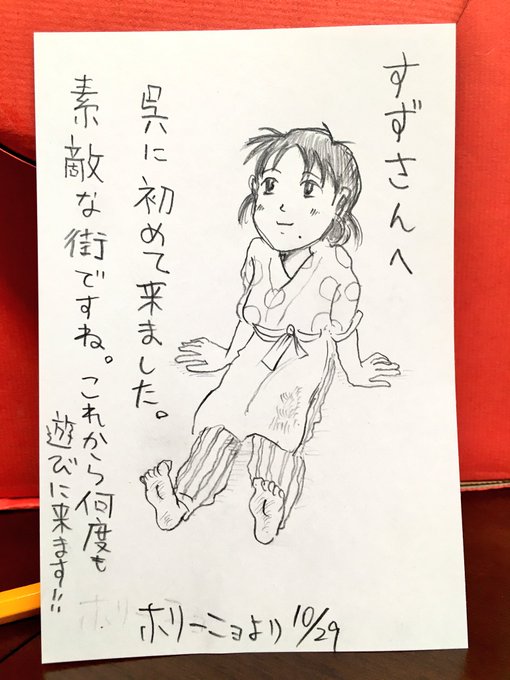 すずさんへ
呉に初めて来ました。
素敵な街ですね。これから何度も
遊びに来ます!!
ホリーニョより 10/29
ホリ